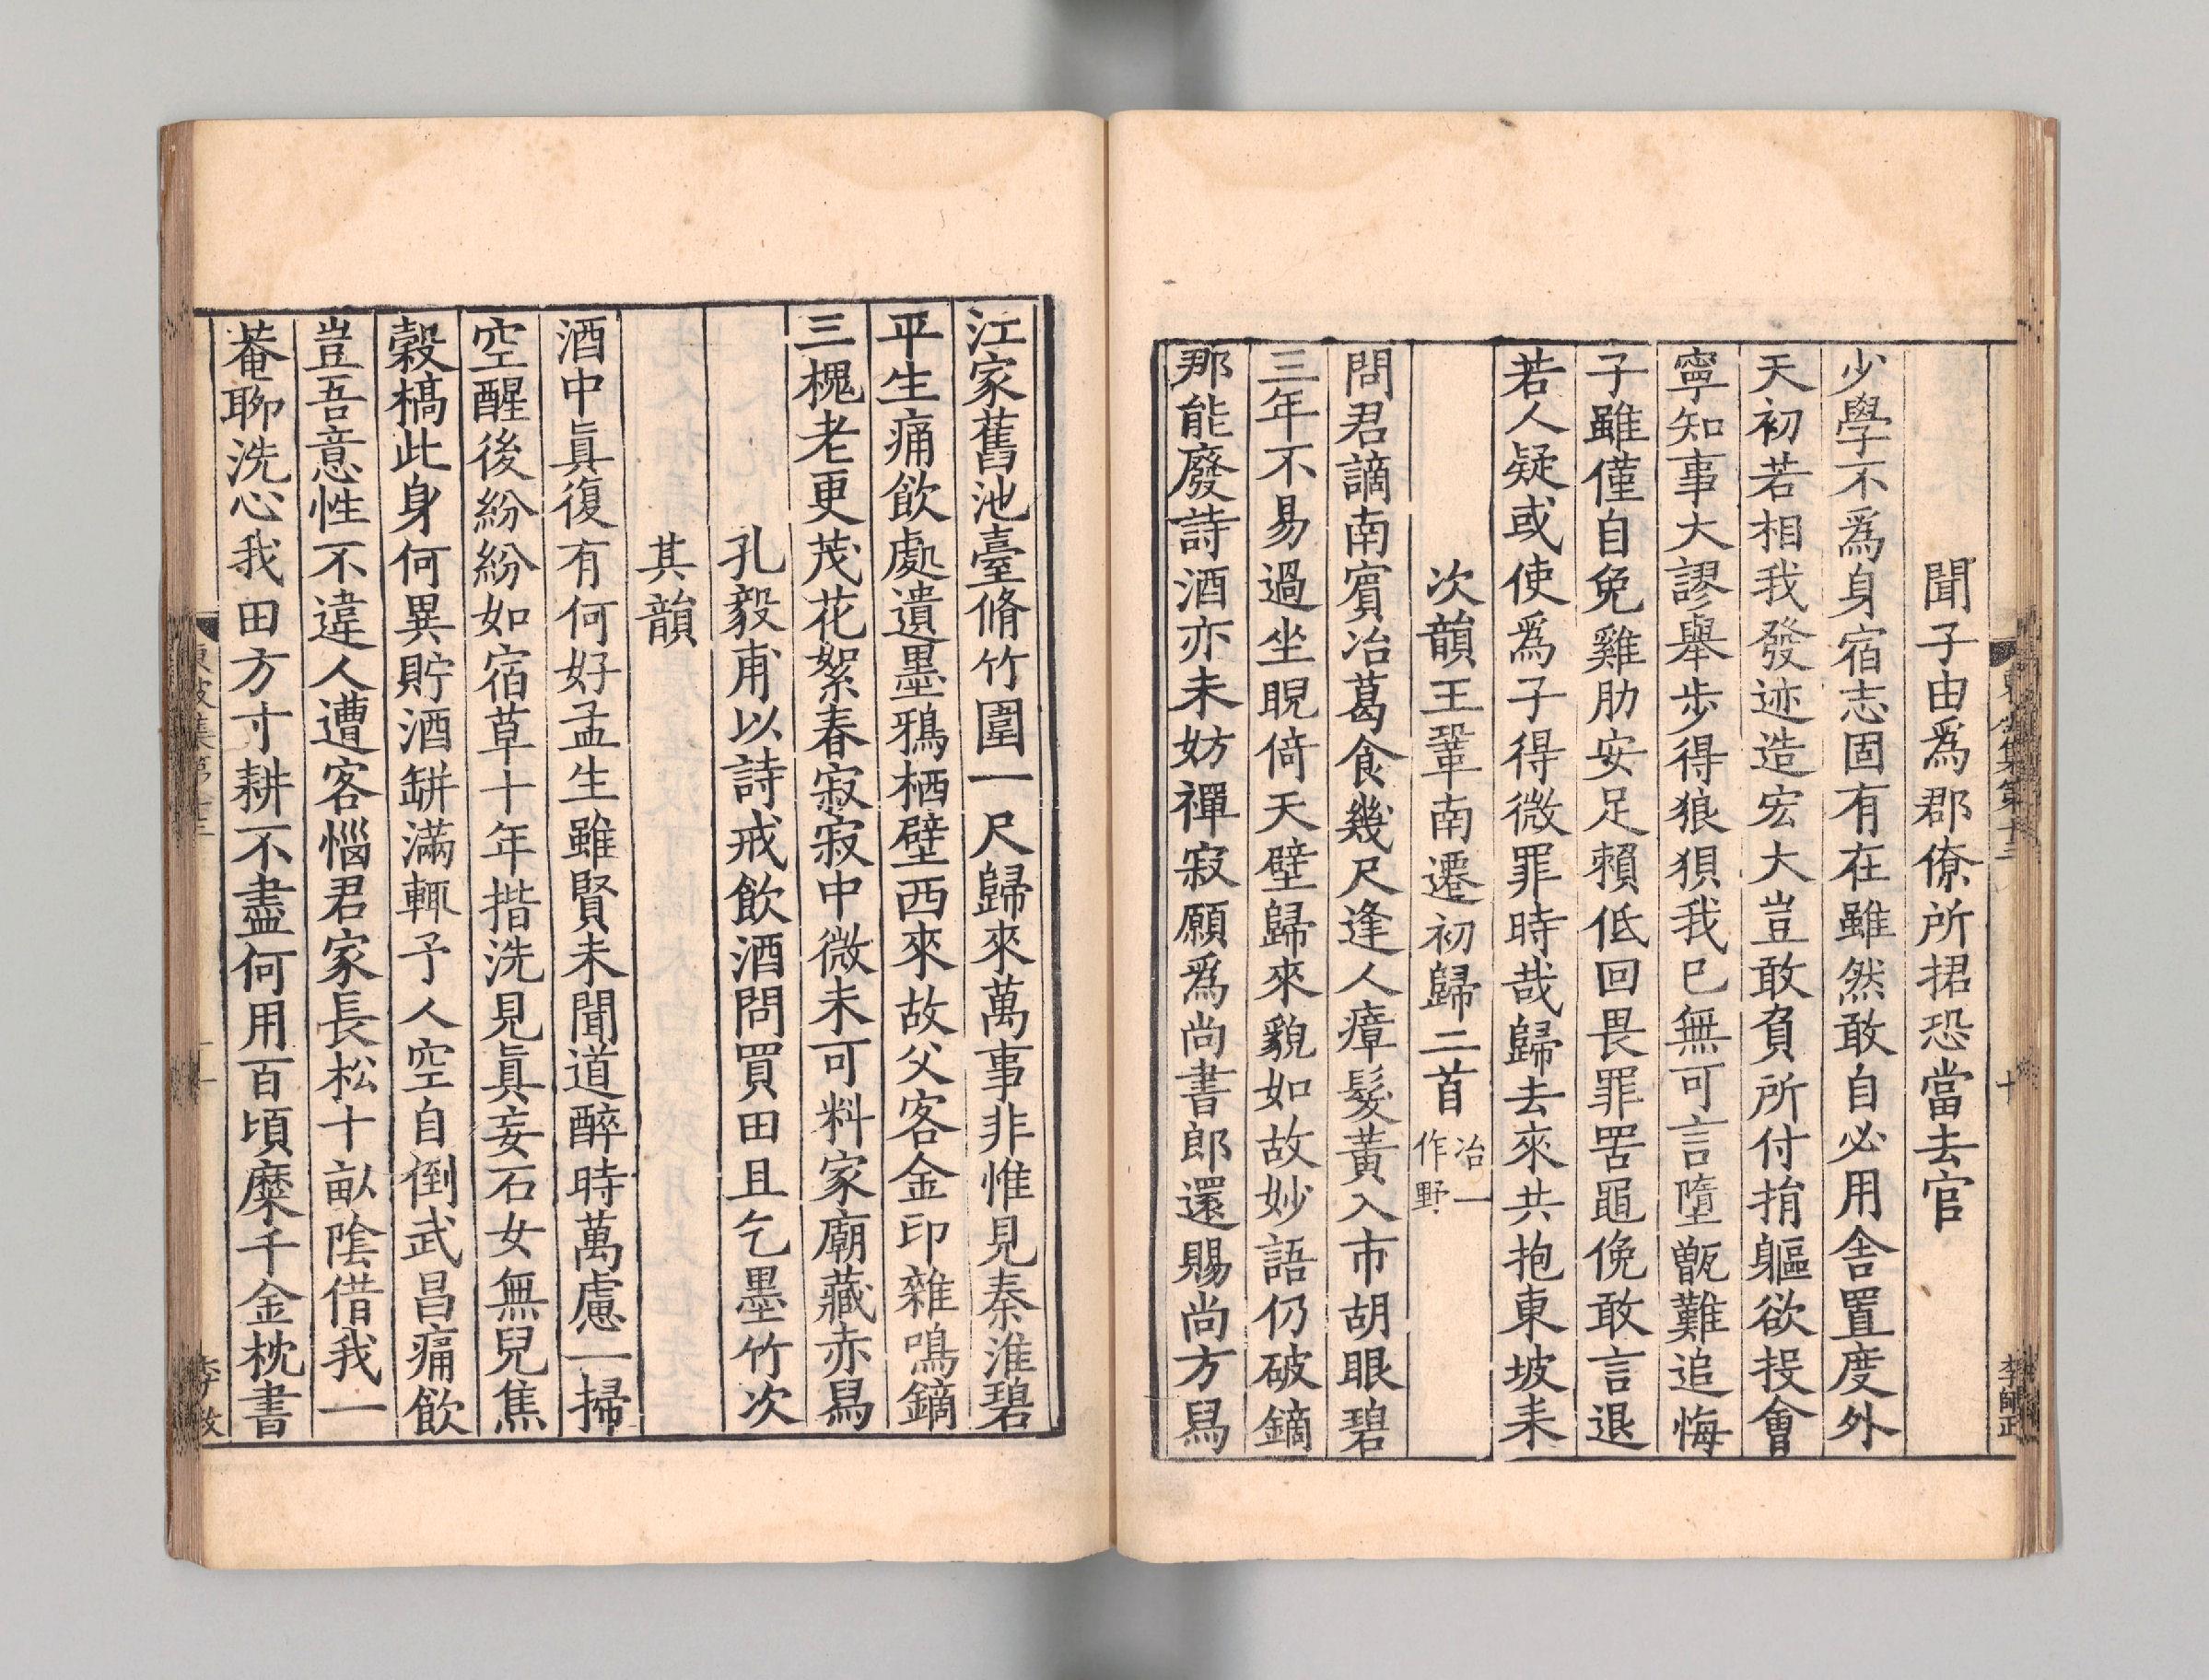 聞子由爲郡僚所捃恐當去官
少學不爲身宿志固有在雖然敢自必用舍置度外
天初若相我發迹造宏大豈敢負所付捐軀欲投會
寧知事大謬舉步得狼狽我已無可言墮甑難追悔
子雖僅自免雞肋安足賴低回畏罪罟黽俛敢言退
若人疑或使爲子得微罪時哉歸去來共抱東坡耒
次韻王鞏南遷初歸二首冶一作野
問君謫南賓冶葛食幾尺逢人瘴髮黃入市胡眼碧
三年不易過坐睨倚天壁歸來貌如故妙語仍破鏑
那能廢詩酒亦未妨禪寂願爲尚書郎還賜尚方舄
江家舊池臺脩竹圍一尺歸來萬事非惟見秦淮碧
平生痛飲處遺墨鴉栖壁西來故父客金印雜鳴鏑
三槐老更茂花絮春寂寂中微未可料家廟藏赤舄
孔毅甫以詩戒飲酒問買田且乞墨竹次
其韻
酒中眞復有何好孟生雖賢未聞道醉時萬慮一掃
空醒後紛紛如宿草十年揩洗見眞妄石女無兒焦
穀槁此身何異貯酒缾滿輒予人空自倒武昌痛飲
豈吾意性不違人遭客惱君家長松十畝陰借我一
菴聊洗心我田方寸耕不盡何用百頃糜千金枕書